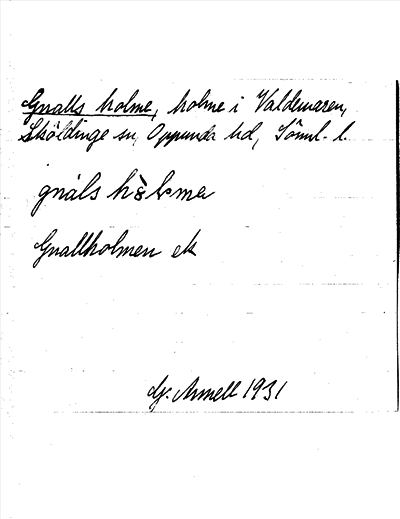 Gnalls holme, holme i Valdemaren,
Sköldinge sn, Oppunda hd, Söml. l.
gnáls hòlmə
Gnallholmen ek
G. Armell 1931